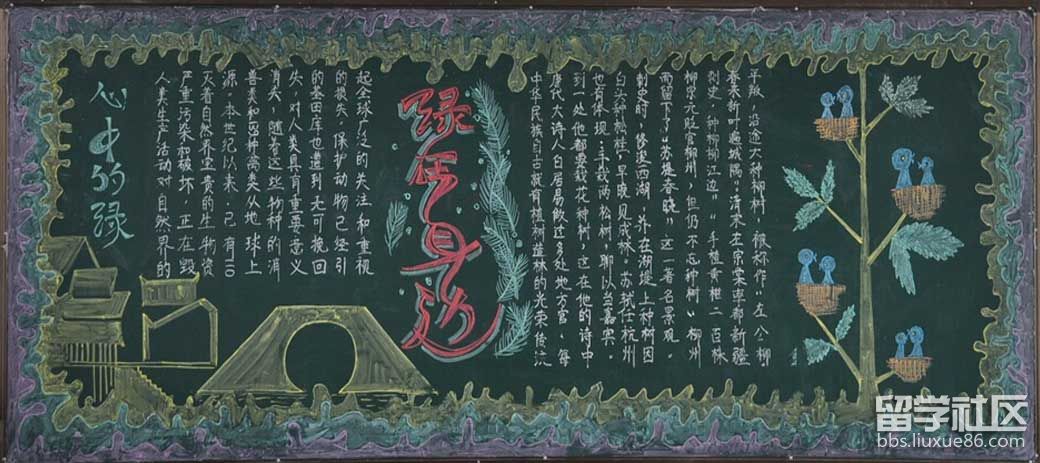 心中的绿
人类生产活动对自然界的
严重污染和破坏，正在毁
灭着自然界宝贵的生物资
源，本世纪以来，已有110
兽类和139种禽类从地球上
消失，随着这些物种的消
失，对人类具有重要意义
的基因库也遭到无可挽回
的损失，保护动物已经引
起全球广泛的关注和重视
绿在身边
中华民族自古就有植树造林的光荣传统
唐代大诗人白居易做过多处地方官，每
到一处他都要栽花种树，这在他的诗中
也有体现：手栽两松树，聊以当嘉宾。
白头种松桂，早晚见成林。苏轼任杭州
刺史时，修浚西湖，并在湖堤上种树因
而留下了“苏堤春晓”这一著名景观。
柳宗元贬官柳州，但仍不忘种树“柳州
刺史，种柳柳江边”“手植黄柑二百株
春来新叶遍城隅”清末左宗棠率部新疆
平叛，沿途大种柳树，被称作“左公柳
留学社区
bbs.liuxue86.com